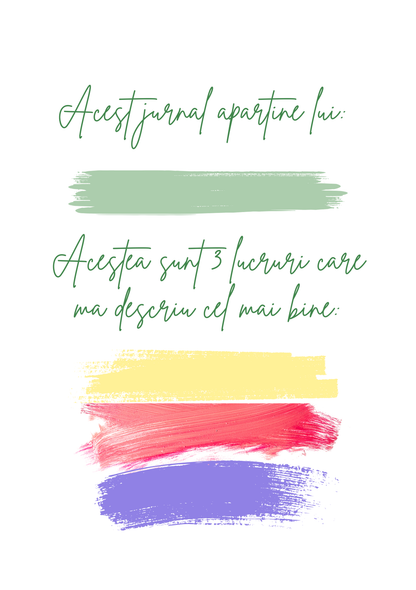 Acest jurnal apartine lui:
Acestea sunt 3 lucruri care
ma descriu cel mai bine: